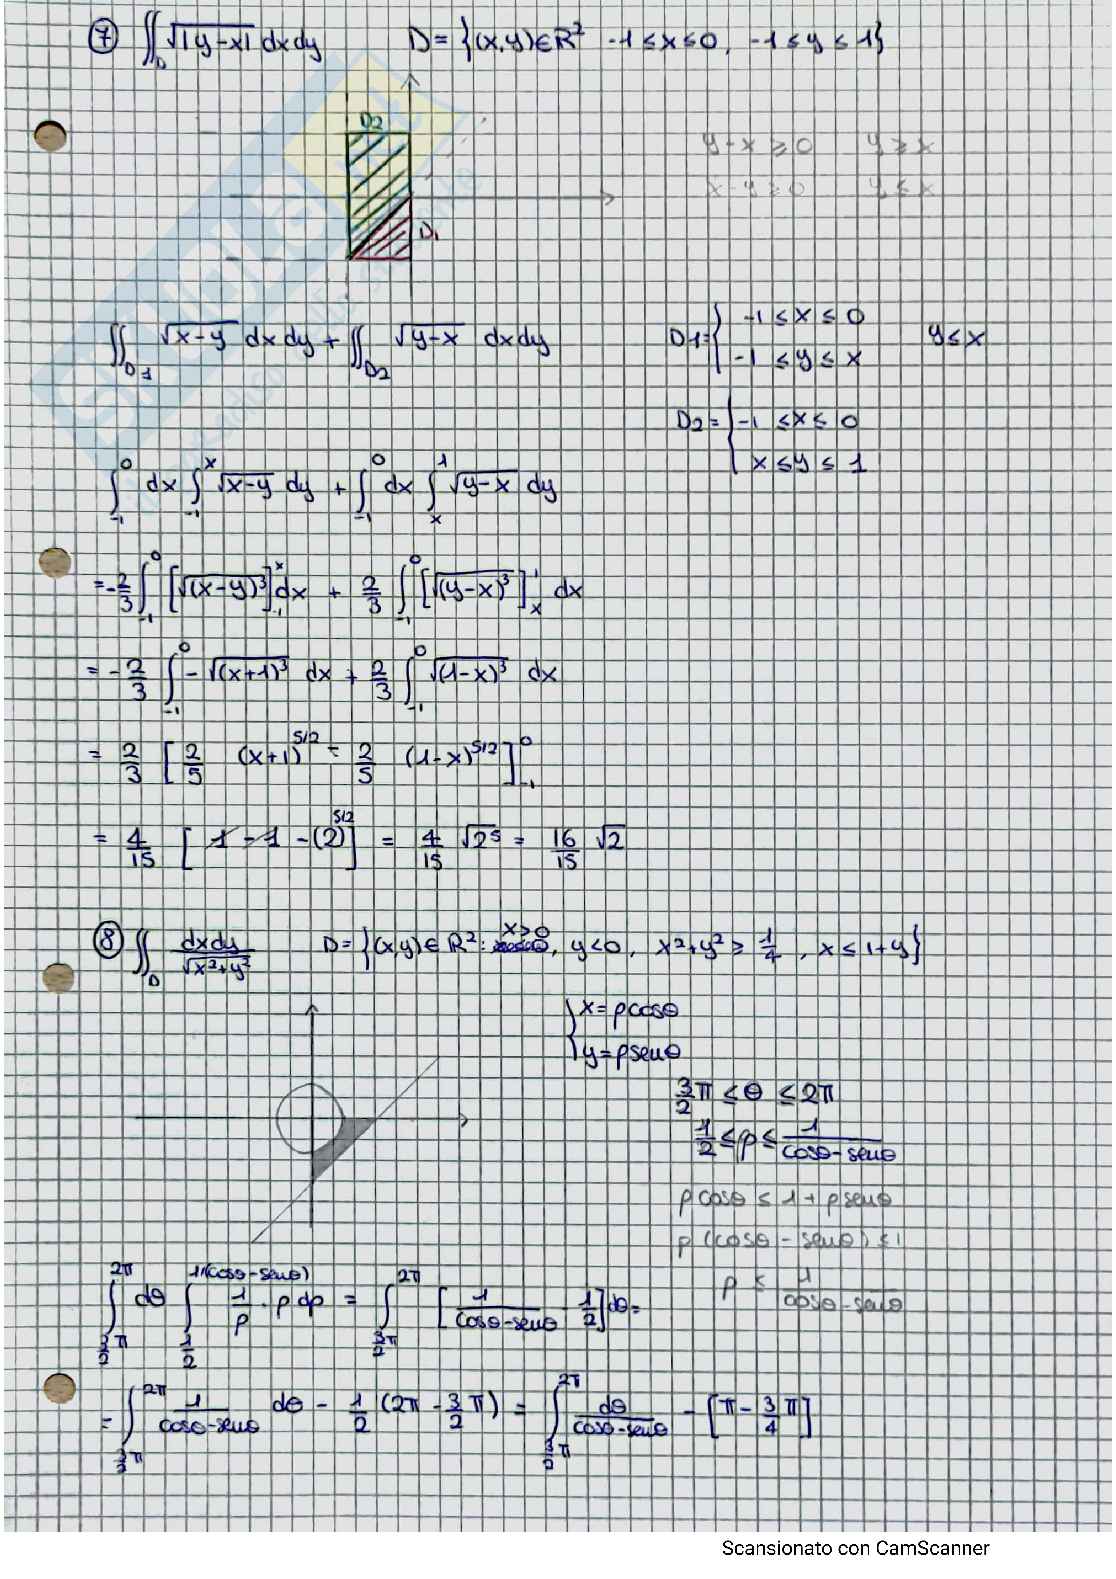 ⑦ ∬_D √|y-x| dxdy D = {(x,y)∈R² -1≤x≤0, -1≤y≤1}
D2
y-x ≥ 0 y ≥ x
x-y ≥ 0 y ≤ x
D1
∬_D1 √(x-y) dxdy + ∬_D2 √(y-x) dxdy D1= { -1≤x≤0 y≤x
-1≤y≤x
D2= { -1≤x≤0
x≤y≤1
∫_-1^0 dx ∫_-1^x √(x-y) dy + ∫_-1^0 dx ∫_x^1 √(y-x) dy
= -2/3 ∫_-1^0 [√(x-y)³]_-1^x dx + 2/3 ∫_-1^0 [√(y-x)³]_x^1 dx
= -2/3 ∫_-1^0 -√(x+1)³ dx + 2/3 ∫_-1^0 √(1-x)³ dx
= 2/3 [2/5 (x+1)^5/2 - 2/5 (1-x)^5/2]_-1^0
= 4/15 [1-1-(2)^5/2] = 4/15 √2⁵ = 16/15 √2
⑧ ∬_D dxdy/√(x²+y²) D= {(x,y)∈R²: x>0, y<0, x²+y² ≥ 1/4, x≤1+y}
{ x=ρcosθ
y=ρsenθ
3/2 π ≤ θ ≤ 2π
1/2 ≤ ρ ≤ 1/(cosθ-senθ)
ρcosθ ≤ 1 + ρsenθ
ρ(cosθ - senθ) ≤ 1
ρ ≤ 1/(cosθ-senθ)
∫_3/2π^2π dθ ∫_1/2^1/(cosθ-senθ) 1/ρ · ρ dρ = ∫_3/2π^2π [1/(cosθ-senθ) - 1/2] dθ =
= ∫_3/2π^2π 1/(cosθ-senθ) dθ - 1/2 (2π - 3/2 π) = ∫_3/2π^2π dθ/(cosθ-senθ) - [π - 3/4 π]
Scansionato con CamScanner